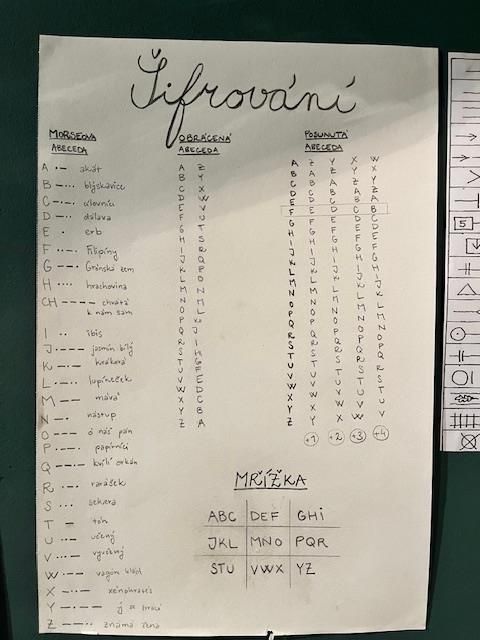 Šifrování
MORSEOVA
ABECEDA
A ·— akát
B —··· blýskavice
C —·—· cílovníci
D —·· dálava
E · erb
F ··—· Filipíny
G ——· Grónská zem
H ···· hrachovina
CH ———— chvátá
k nám sám
I ·· ibis
J ·——— jasmín bílý
K —·— krákorá
L ·—·· lupíneček
M —— mává
N —· nástup
O ——— ó náš pán
P ·——· papírníci
Q ——·— kvílí orkán
R ·—· rarášek
S ··· sekera
T — tón
U ··— učený
V ···— vyučený
W ·—— vagón klád
X —··— xénokratés
Y —·—— ý se krácí
Z ——·· známá žena
OBRÁCENÁ
ABECEDA
A Z
B Y
C X
D W
E V
F U
G T
H S
I R
J Q
K P
L O
M N
N M
O L
P K
Q J
R I
S H
T G
U F
V E
W D
X C
Y B
Z A
POSUNUTÁ
ABECEDA
A Z Y X W
B A Z Y X
C B A Z Y
D C B A Z
E D C B A
F E D C B
G F E D C
H G F E D
I H G F E
J I H G F
K J I H G
L K J I H
M L K J I
N M L K J
O N M L K
P O N M L
Q P O N M
R Q P O N
S R Q P O
T S R Q P
U T S R Q
V U T S R
W V U T S
X W V U T
Y X W V U
Z Y X W V
+1 +2 +3 +4
MŘÍŽKA
ABC DEF GHI
JKL MNO PQR
STU VWX YZ
5